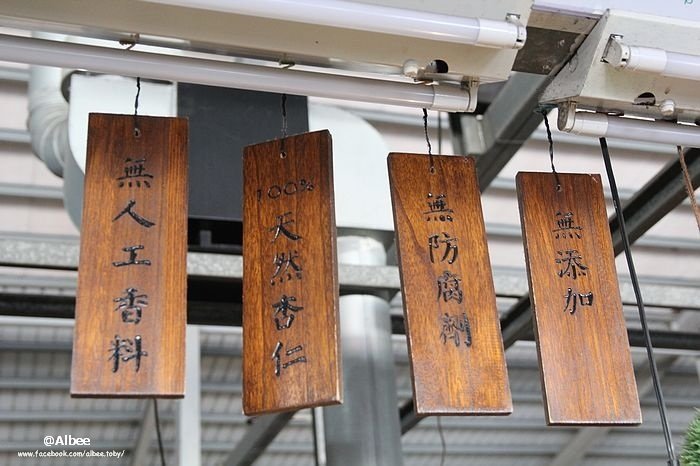 無人工香料
100%天然杏仁
無防腐劑
無添加
@Albee
www.facebook.com/albee.toby/